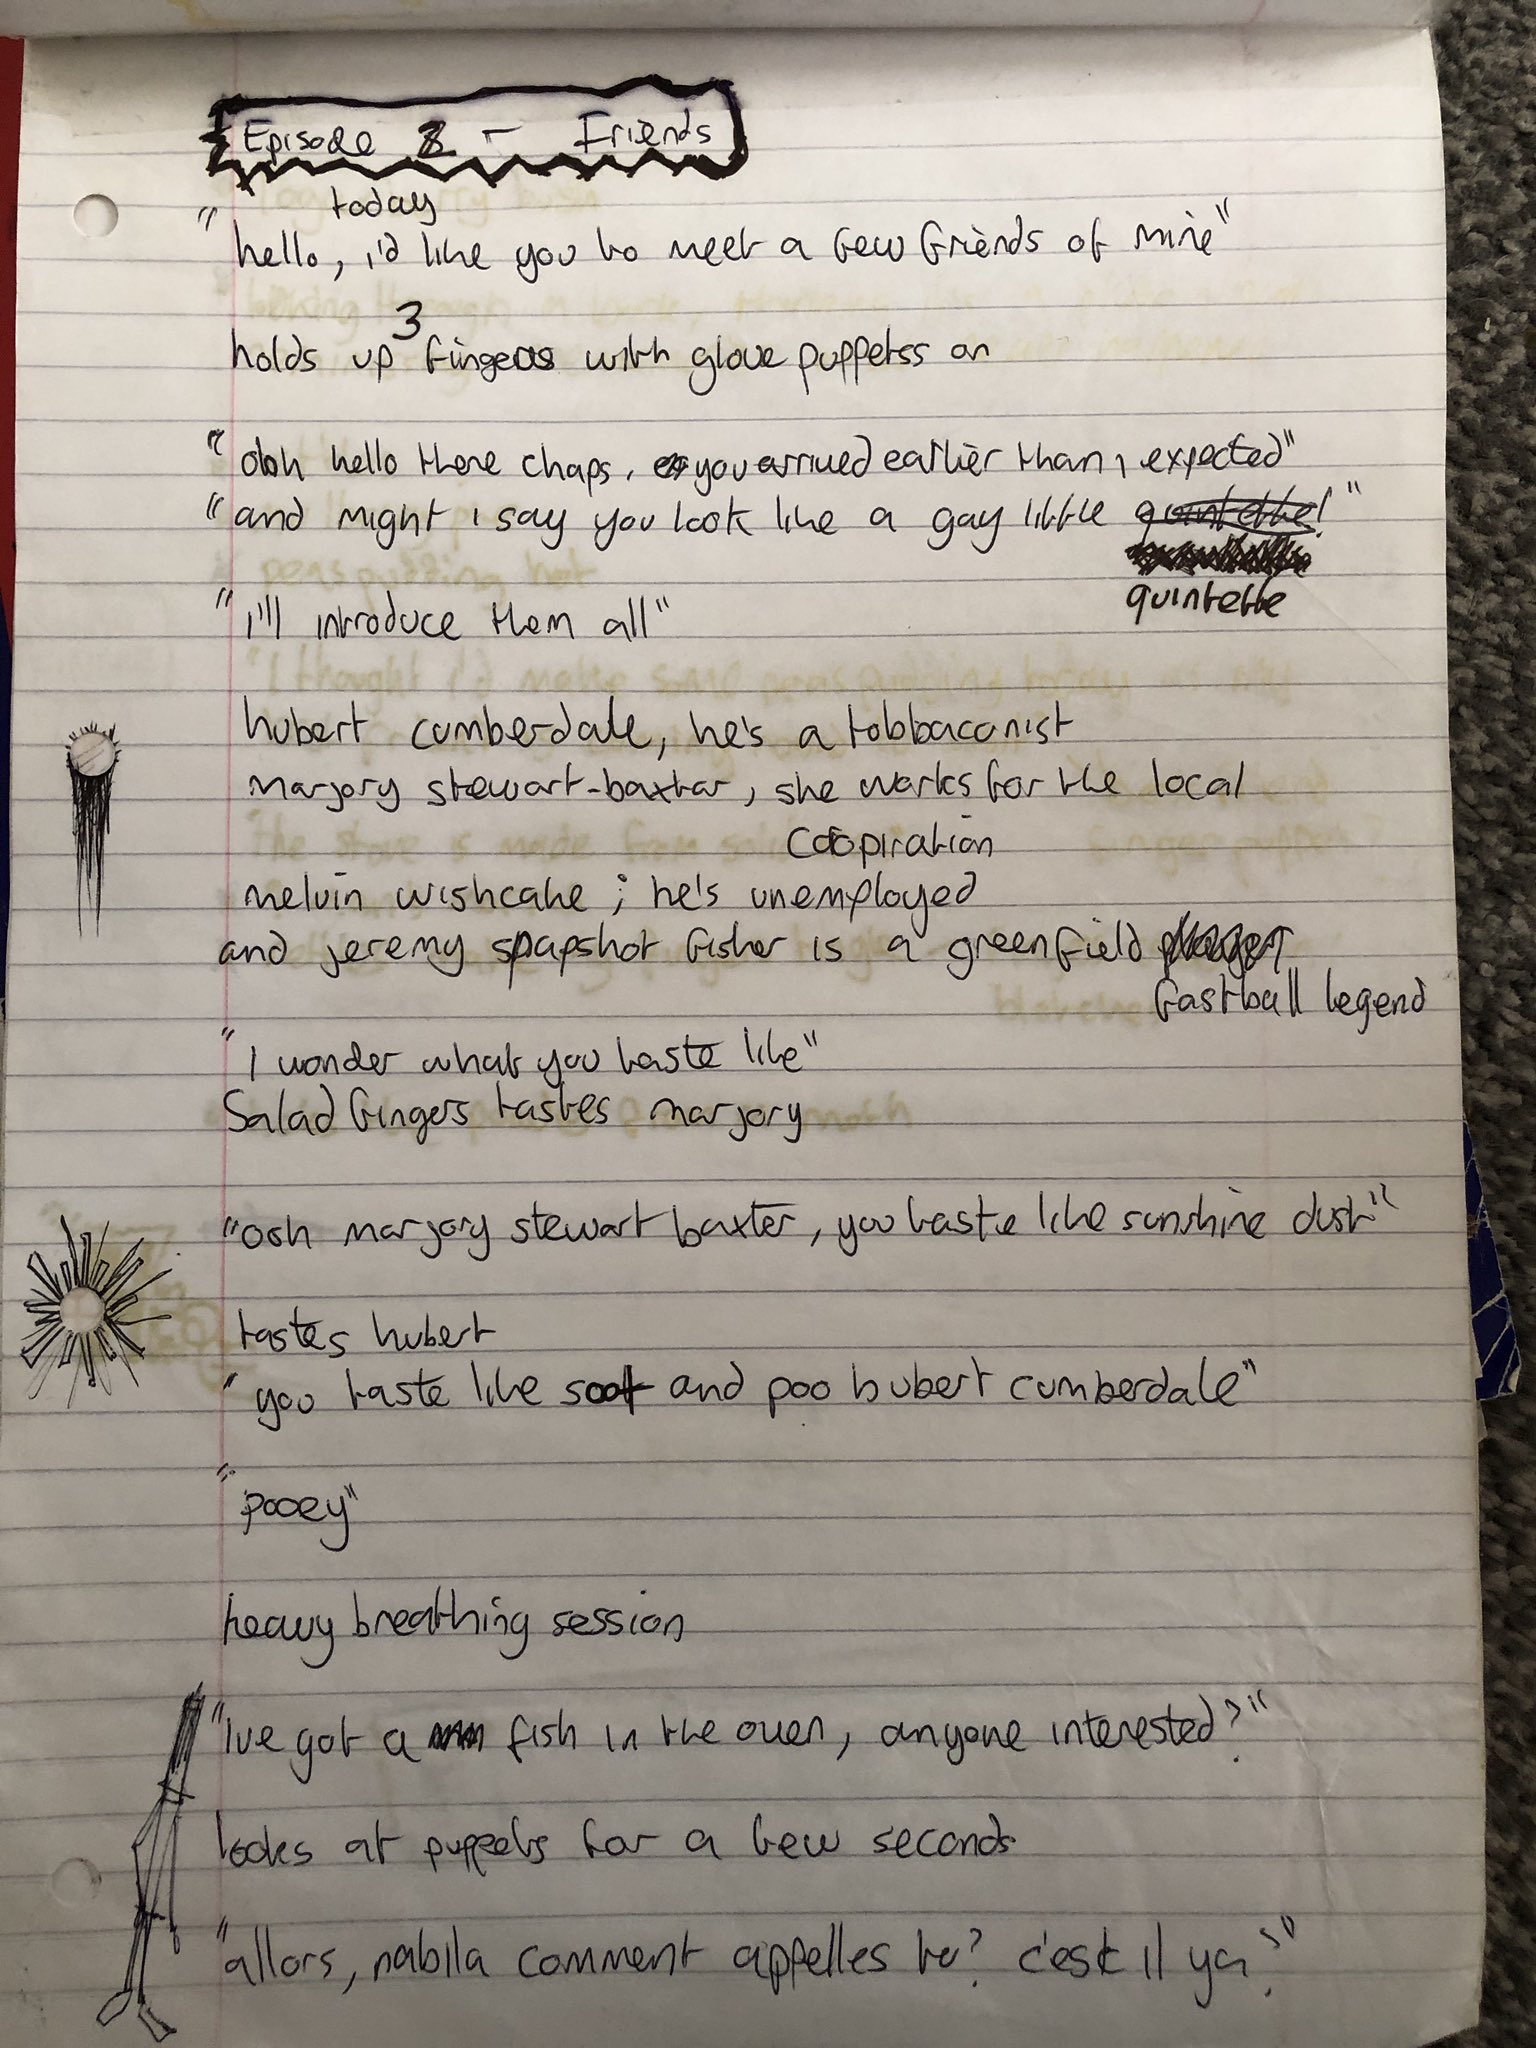 Episode 2 - Friends
today
"hello, i'd like you to meet a few friends of mine"
3
holds up fingers with glove puppetss on
"ooh hello there chaps, you arrived earlier than i expected"
"and might i say you look like a gay little quintette!"
quintette
"i'll introduce them all"
hubert cumberdale, he's a tobbaconist
marjory stewart-baxtar, she works for the local
coopiration
melvin wishcake; he's unemployed
and jeremy snapshot fisher is a greenfield
fastball legend
"I wonder what you taste like"
Salad fingers tastes marjory
"ooh marjory stewart baxter, you taste like sunshine dust"
tastes hubert
"you taste like soot and poo hubert cumberdale"
"pooey"
heavy breathing session
"Ive got a fish in the oven, anyone interested?"
looks at puppets for a few seconds
"allors, nabila comment appelles tu? c'est il ya?"